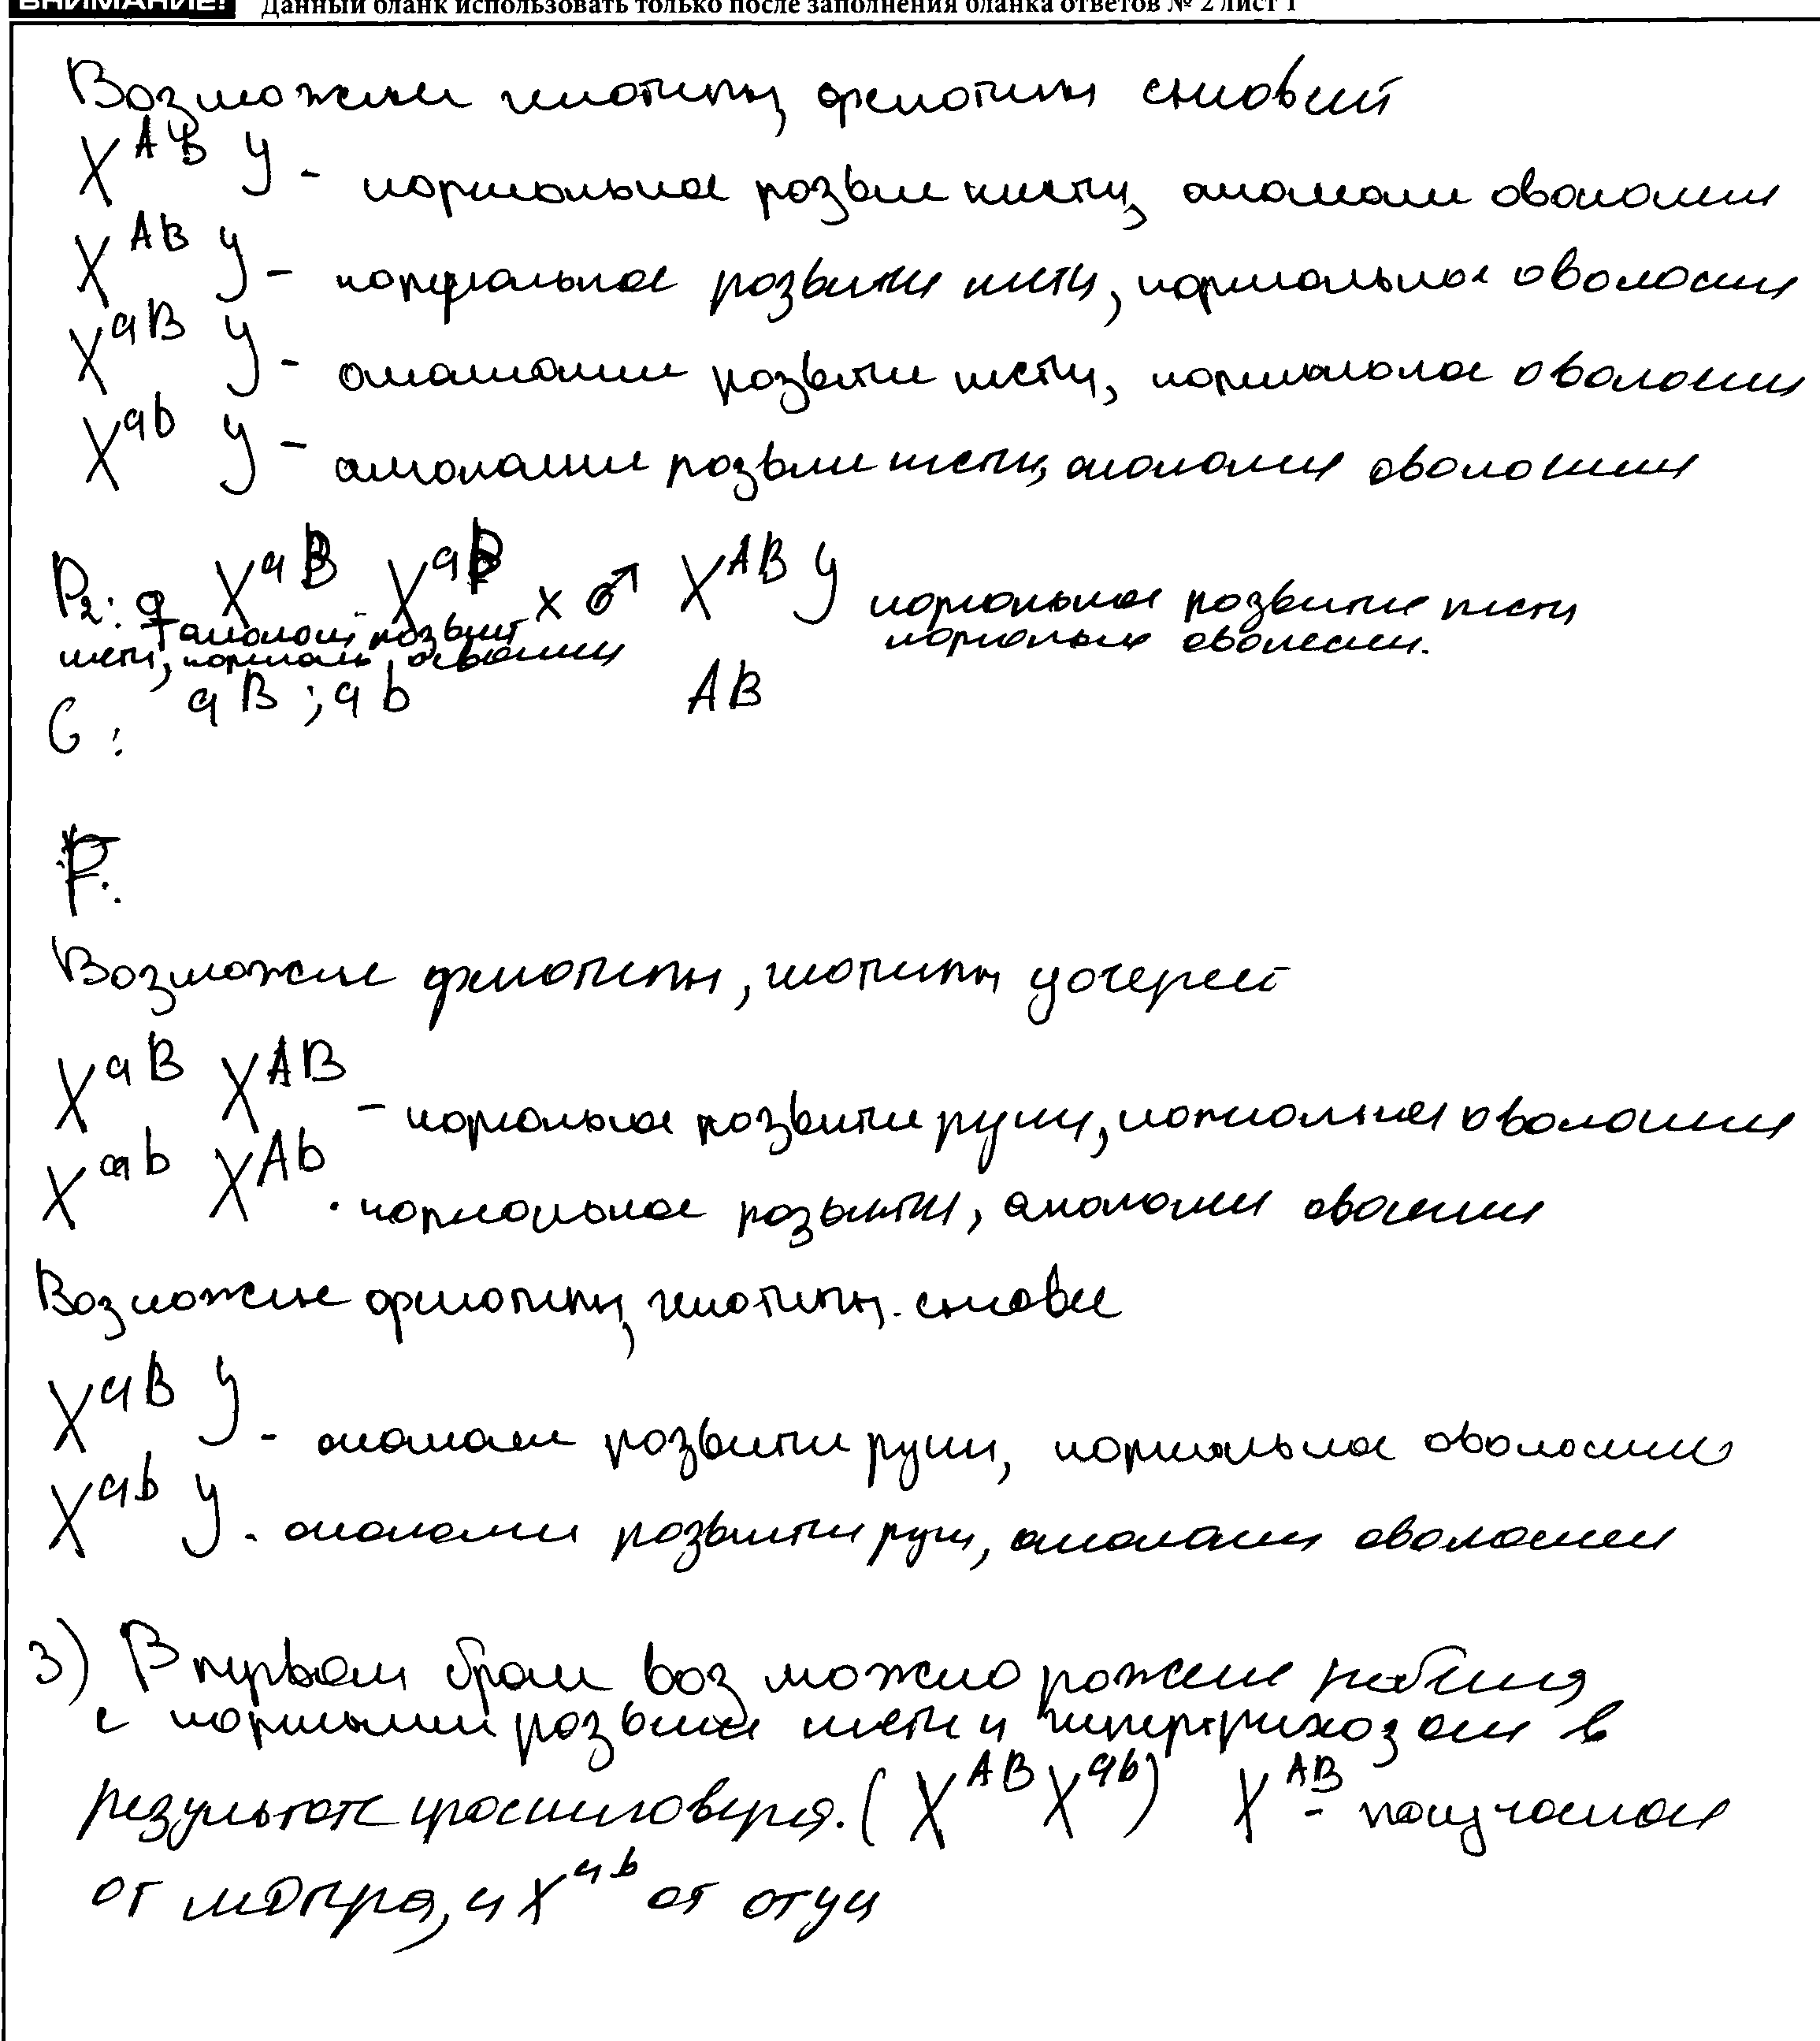 ВНИМАНИЕ! Данный бланк использовать только после заполнения бланка ответов № 2 лист 1
Возможн генотипы, фенотипы сыновей
X^Ab У - нормальное развит кисти, аномали оволосени
X^AB У - нормальное развити кисти, нормальное оволосени
X^aB У - аномалии развити кисти, нормальное оволосени
X^ab У - аномалии развити кисти, аномалия оволосени
P2: ♀ X^aB X^ab x ♂ X^AB У нормальное развитие кисти
аномали развит нормальн оволосени.
кисти, нормаль,
G: aB ; ab AB
F:
Возможные фенотипы, генотипы дочерей
X^aB X^AB - нормальное развити руки, нормальное оволосени
X^ab X^Ab - нормальное развити, аномали
Возможные фенотипы, генотипы сынове
X^aB У - аномали развити руки, нормальное оволосени
X^ab У - аномали развити руки, аномали оволосени
3) В первом браке возможно рожение ребенка
с нормальным развити кисти и гипертрихозом в
результате кроссинговера. (X^AB X^ab) X^AB - получаемая
от матери, и X^ab от отца